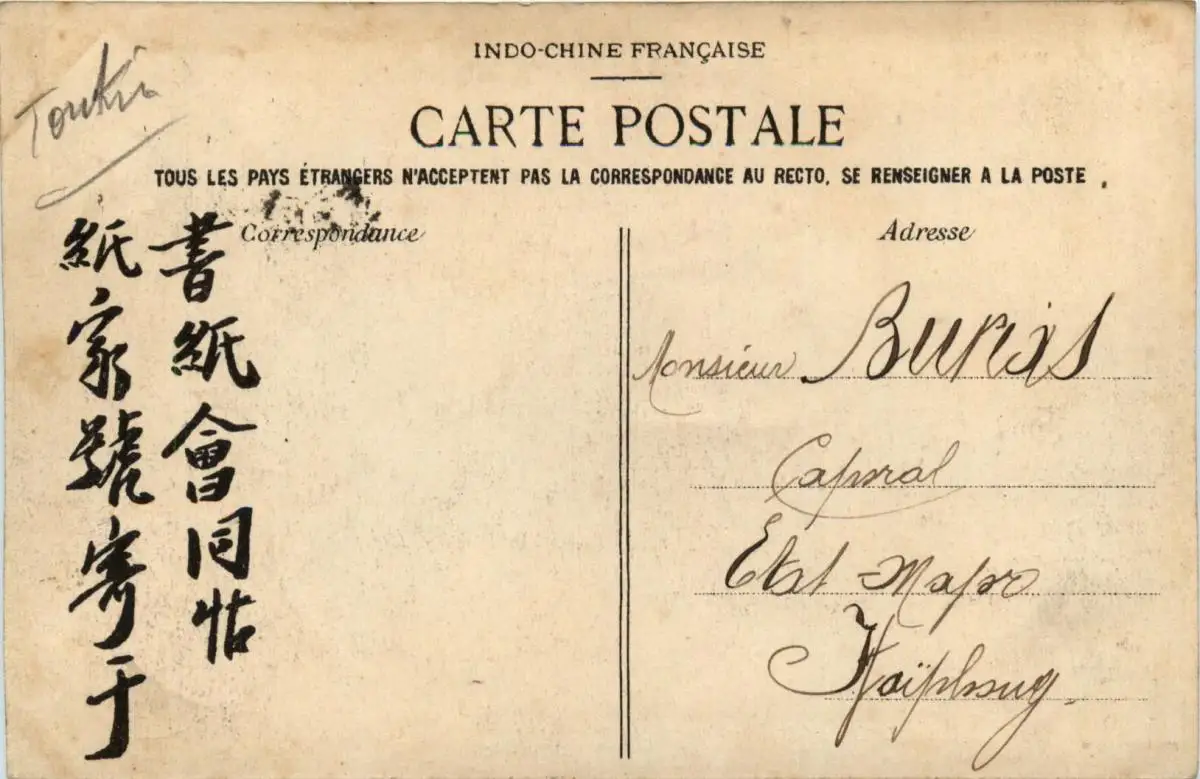 Tonkin
INDO-CHINE FRANÇAISE
CARTE POSTALE
TOUS LES PAYS ÉTRANGERS N'ACCEPTENT PAS LA CORRESPONDANCE AU RECTO, SE RENSEIGNER A LA POSTE.
Correspondance
書紙會同帖
紙家號寄于
Adresse
Monsieur
Caporal
Etat-Major
Haïphong.